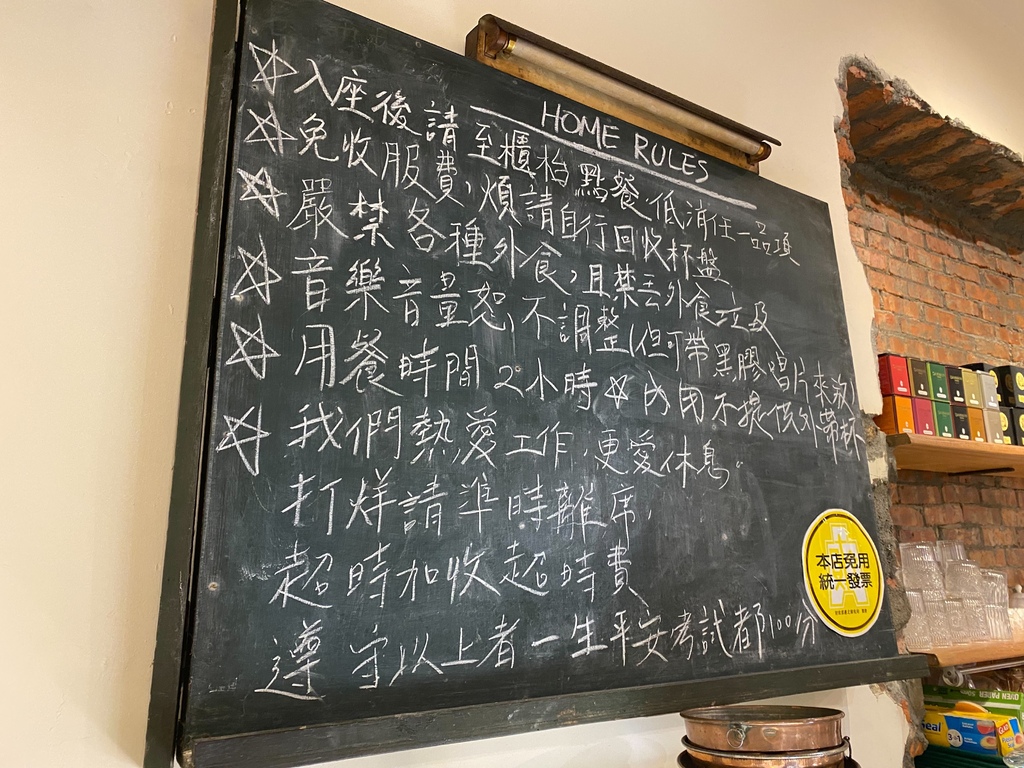 HOME RULES
☆入座後請至櫃枱點餐低消任一品項
☆免收服費,煩請自行回收杯盤
☆嚴禁各種外食,且禁丟外食垃圾
☆音樂音量恕不調整(但可帶黑膠唱片來放)
☆用餐時間2小時☆內用不提供外帶杯
☆我們熱愛工作,更愛休息。
打烊請準時離席,
超時加收超時費
遵守以上者一生平安考試都100分
本店免用
統一發票
OVEN PATER
3 in 1